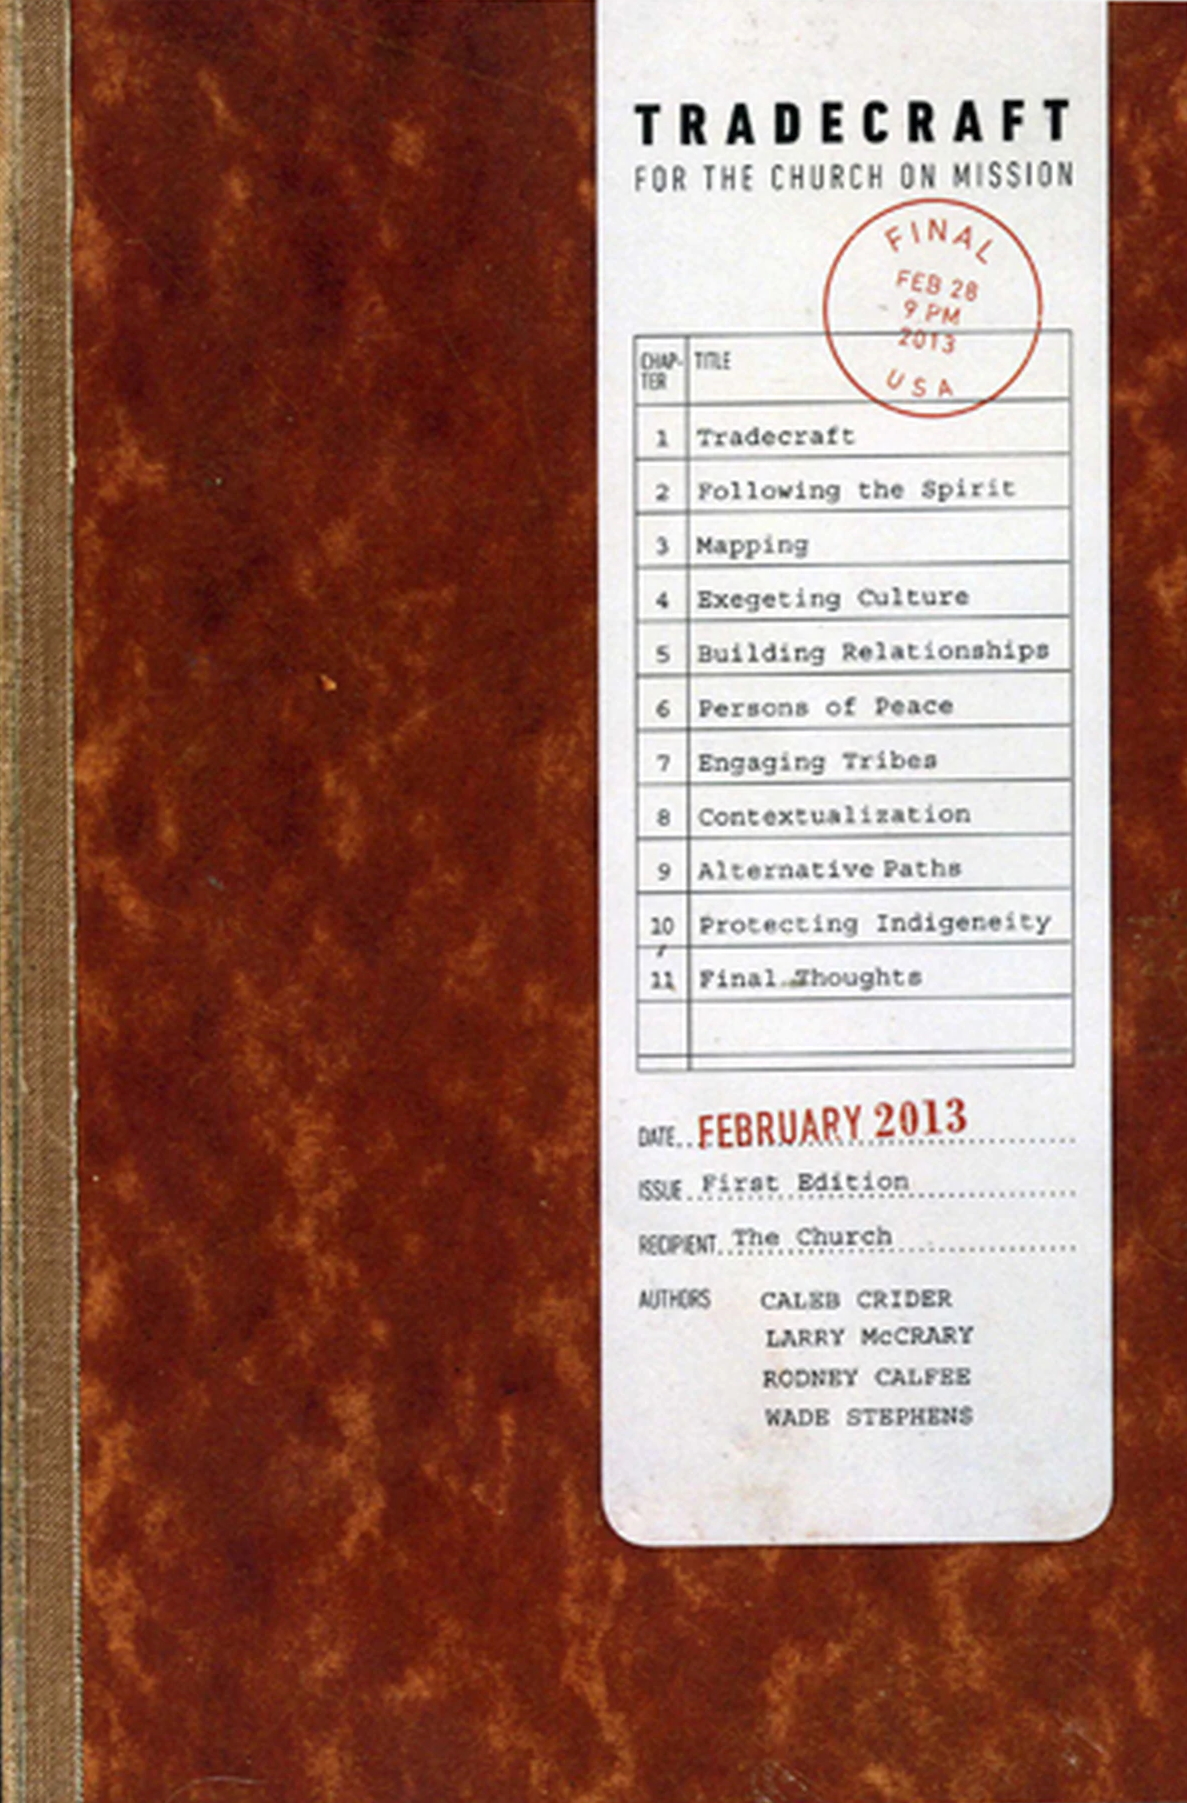 TRADECRAFT
FOR THE CHURCH ON MISSION
FINAL
FEB 28
9 PM
2013
USA
CHAP-
TER
TITLE
1 Tradecraft
2 Following the Spirit
3 Mapping
4 Exegeting Culture
5 Building Relationships
6 Persons of Peace
7 Engaging Tribes
8 Contextualization
9 Alternative Paths
10 Protecting Indigeneity
11 Final Thoughts
DATE FEBRUARY 2013
ISSUE First Edition
RECIPIENT The Church
AUTHORS CALEB CRIDER
LARRY McCRARY
RODNEY CALFEE
WADE STEPHENS